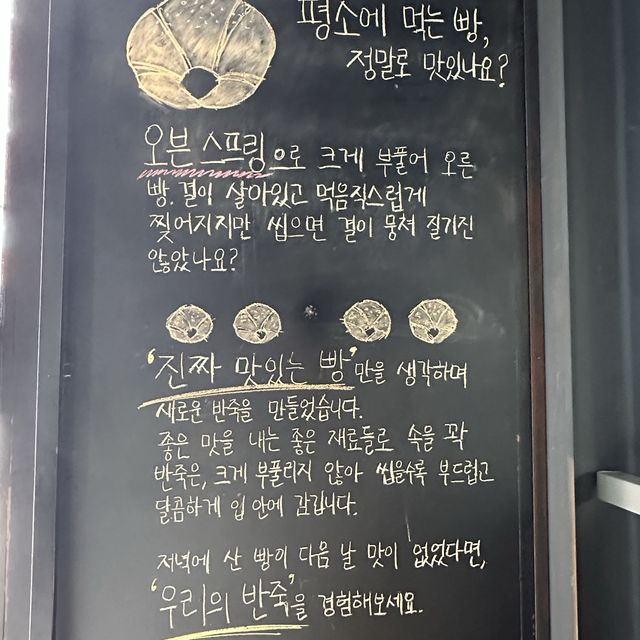 평소에 먹는 빵,
정말로 맛있나요?
오븐 스프링으로 크게 부풀어 오른
빵. 결이 살아있고 먹음직스럽게
찢어지지만 씹으면 결이 뭉쳐 질겨진
않았나요?
'진짜 맛있는 빵'만을 생각하며
새로운 반죽을 만들었습니다.
좋은 맛을 내는 좋은 재료들로 속을 꽉
반죽은, 크게 부풀리지 않아 씹을수록 부드럽고
달콤하게 입 안에 감깁니다.
저녁에 산 빵이 다음 날 맛이 없었다면,
'우리의 반죽'을 경험해보세요.